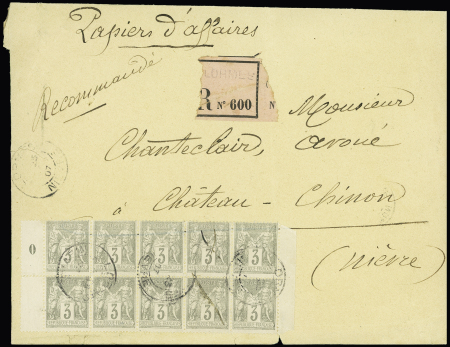 Papiers d'affaires
Recommandé
R No 600
N
Monsieur
Chanteclair, avoué
à Château-Chinon
(Nièvre)
0
3 3 3 3 3
3 3 3 3 3